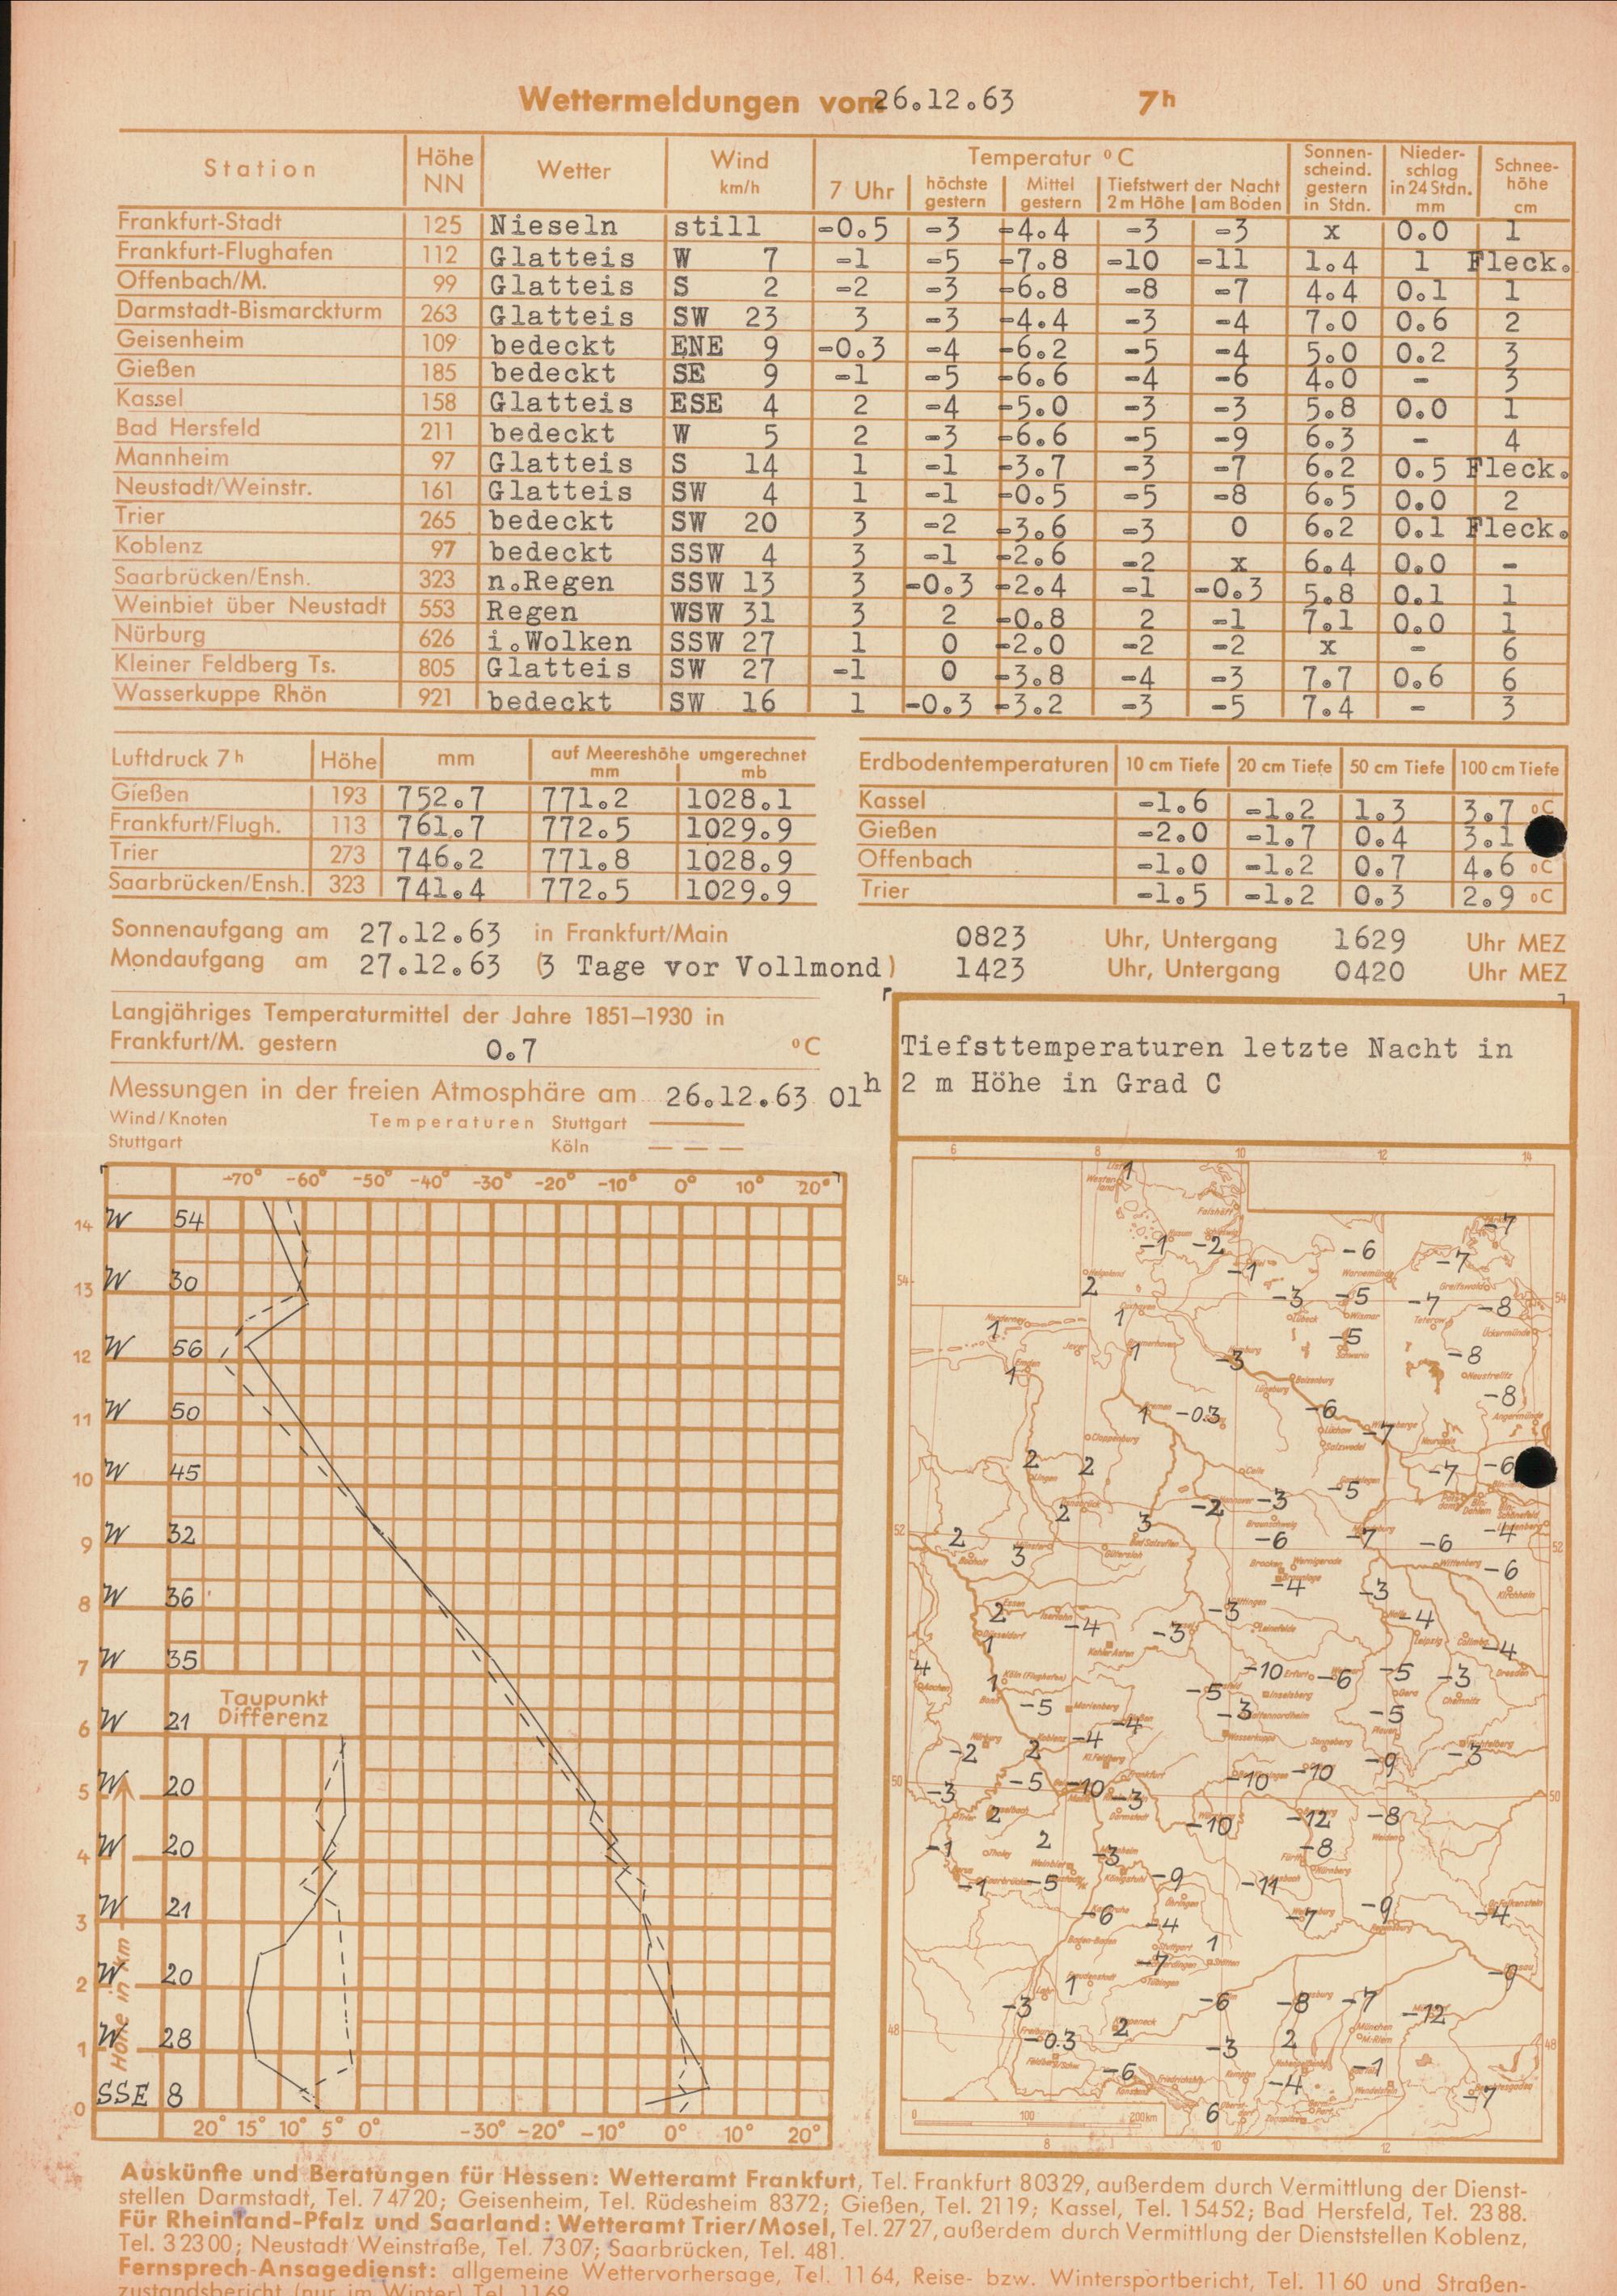 Wettermeldungen vom 26.12.63 7h
Station Höhe NN Wetter Wind km/h Temperatur °C Sonnenscheind. gestern in Stdn. Niederschlag in 24 Stdn. mm Schneehöhe cm
7 Uhr höchste gestern Mittel gestern Tiefstwert der Nacht 2 m Höhe am Boden
Frankfurt-Stadt 125 Nieseln still -0.5 -3 -4.4 -3 -3 x 0.0 1
Frankfurt-Flughafen 112 Glatteis W 7 -1 -5 -7.8 -10 -11 1.4 1 Fleck.
Offenbach/M. 99 Glatteis S 2 -2 -3 -6.8 -8 -7 4.4 0.1 1
Darmstadt-Bismarckturm 263 Glatteis SW 23 3 -3 -4.4 -3 -4 7.0 0.6 2
Geisenheim 109 bedeckt ENE 9 -0.3 -4 -6.2 -5 -4 5.0 0.2 3
Gießen 185 bedeckt SE 9 -1 -5 -6.6 -4 -6 4.0 - 3
Kassel 158 Glatteis ESE 4 2 -4 -5.0 -3 -3 5.8 0.0 1
Bad Hersfeld 211 bedeckt W 5 2 -3 -6.6 -5 -9 6.3 - 4
Mannheim 97 Glatteis S 14 1 -1 -3.7 -3 -7 6.2 0.5 Fleck.
Neustadt/Weinstr. 161 Glatteis SW 4 1 -1 -0.5 -5 -8 6.5 0.0 2
Trier 265 bedeckt SW 20 3 -2 -3.6 -3 0 6.2 0.1 Fleck.
Koblenz 97 bedeckt SSW 4 3 -1 -2.6 -2 x 6.4 0.0 -
Saarbrücken/Ensh. 323 n.Regen SSW 13 3 -0.3 -2.4 -1 -0.3 5.8 0.1 1
Weinbiet über Neustadt 553 Regen WSW 31 3 2 -0.8 2 -1 7.1 0.0 1
Nürburg 626 i.Wolken SSW 27 1 0 -2.0 -2 -2 x - 6
Kleiner Feldberg Ts. 805 Glatteis SW 27 -1 0 -3.8 -4 -3 7.7 0.6 6
Wasserkuppe Rhön 921 bedeckt SW 16 1 -0.3 -3.2 -3 -5 7.4 - 3
Luftdruck 7h Höhe mm auf Meereshöhe umgerechnet mm mb
Gießen 193 752.7 771.2 1028.1
Frankfurt/Flugh. 113 761.7 772.5 1029.9
Trier 273 746.2 771.8 1028.9
Saarbrücken/Ensh. 323 741.4 772.5 1029.9
Erdbodentemperaturen 10 cm Tiefe 20 cm Tiefe 50 cm Tiefe 100 cm Tiefe
Kassel -1.6 -1.2 1.3 3.7 °C
Gießen -2.0 -1.7 0.4 3.1
Offenbach -1.0 -1.2 0.7 4.6 °C
Trier -1.5 -1.2 0.3 2.9 °C
Sonnenaufgang am 27.12.63 in Frankfurt/Main 0823 Uhr, Untergang 1629 Uhr MEZ
Mondaufgang am 27.12.63 (3 Tage vor Vollmond) 1423 Uhr, Untergang 0420 Uhr MEZ
Langjähriges Temperaturmittel der Jahre 1851–1930 in
Frankfurt/M. gestern 0.7 °C
Messungen in der freien Atmosphäre am 26.12.63 01h
Wind/Knoten Temperaturen Stuttgart
Stuttgart Köln
-70° -60° -50° -40° -30° -20° -10° 0° 10° 20°
14 W 54
13 W 30
12 W 56
11 W 50
10 W 45
9 W 32
8 W 36
7 W 35
Taupunkt
Differenz
6 W 21
5 W 20
4 W 20
3 W 21
2 W 20
1 W 28
0 SSE 8
Höhe in km
20° 15° 10° 5° 0° -30° -20° -10° 0° 10° 20°
Tiefsttemperaturen letzte Nacht in
2 m Höhe in Grad C
6 8 10 12 14
1
-1 -2 -1 -6 -7 -7
54 2 -3 -5 -7 -8 54
1 1 -5
1 1 -3 -8
1 -0.3 -6 -7 -8
2 2 -5 -7 -6
2 3 -2 -3
52 2 3 -6 -7 -6 -4 52
-4 -3 -6
2 -4 -3 -3 -4
1 -4
4 1 -5 -10 -6 -5 -3
-5 -4 -3 -5
-2 2 -4 -9 -3
50 -3 -5 -10 -3 -10 -10 50
2 -10 -12 -8
-1 2 -3 -8
-1 -5 -9 -11
-6 -4 -7 -9 -4
1
-7 -9
-3 1 -6 -8 -7 -12
48 -0.3 2 -3 2 48
-6 -4 -1 -7
6
0 100 200 km
8 10 12
Auskünfte und Beratungen für Hessen: Wetteramt Frankfurt, Tel. Frankfurt 80329, außerdem durch Vermittlung der Dienst-
stellen Darmstadt, Tel. 74720; Geisenheim, Tel. Rüdesheim 8372; Gießen, Tel. 2119; Kassel, Tel. 15452; Bad Hersfeld, Tel. 2388.
Für Rheinland-Pfalz und Saarland: Wetteramt Trier/Mosel, Tel. 2727, außerdem durch Vermittlung der Dienststellen Koblenz,
Tel. 32300; Neustadt Weinstraße, Tel. 7307; Saarbrücken, Tel. 481.
Fernsprech-Ansagedienst: allgemeine Wettervorhersage, Tel. 1164, Reise- bzw. Wintersportbericht, Tel. 1160 und Straßen-
zustandsbericht (nur im Winter) Tel. 1169